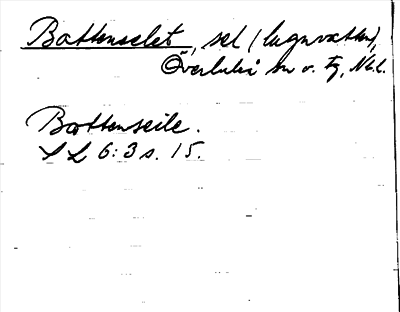 Bottenselet, sel (lugnvatten),
Överluleå sn o. tg, Nb.l.
Bottenseile.
SL 6:3 s. 15.